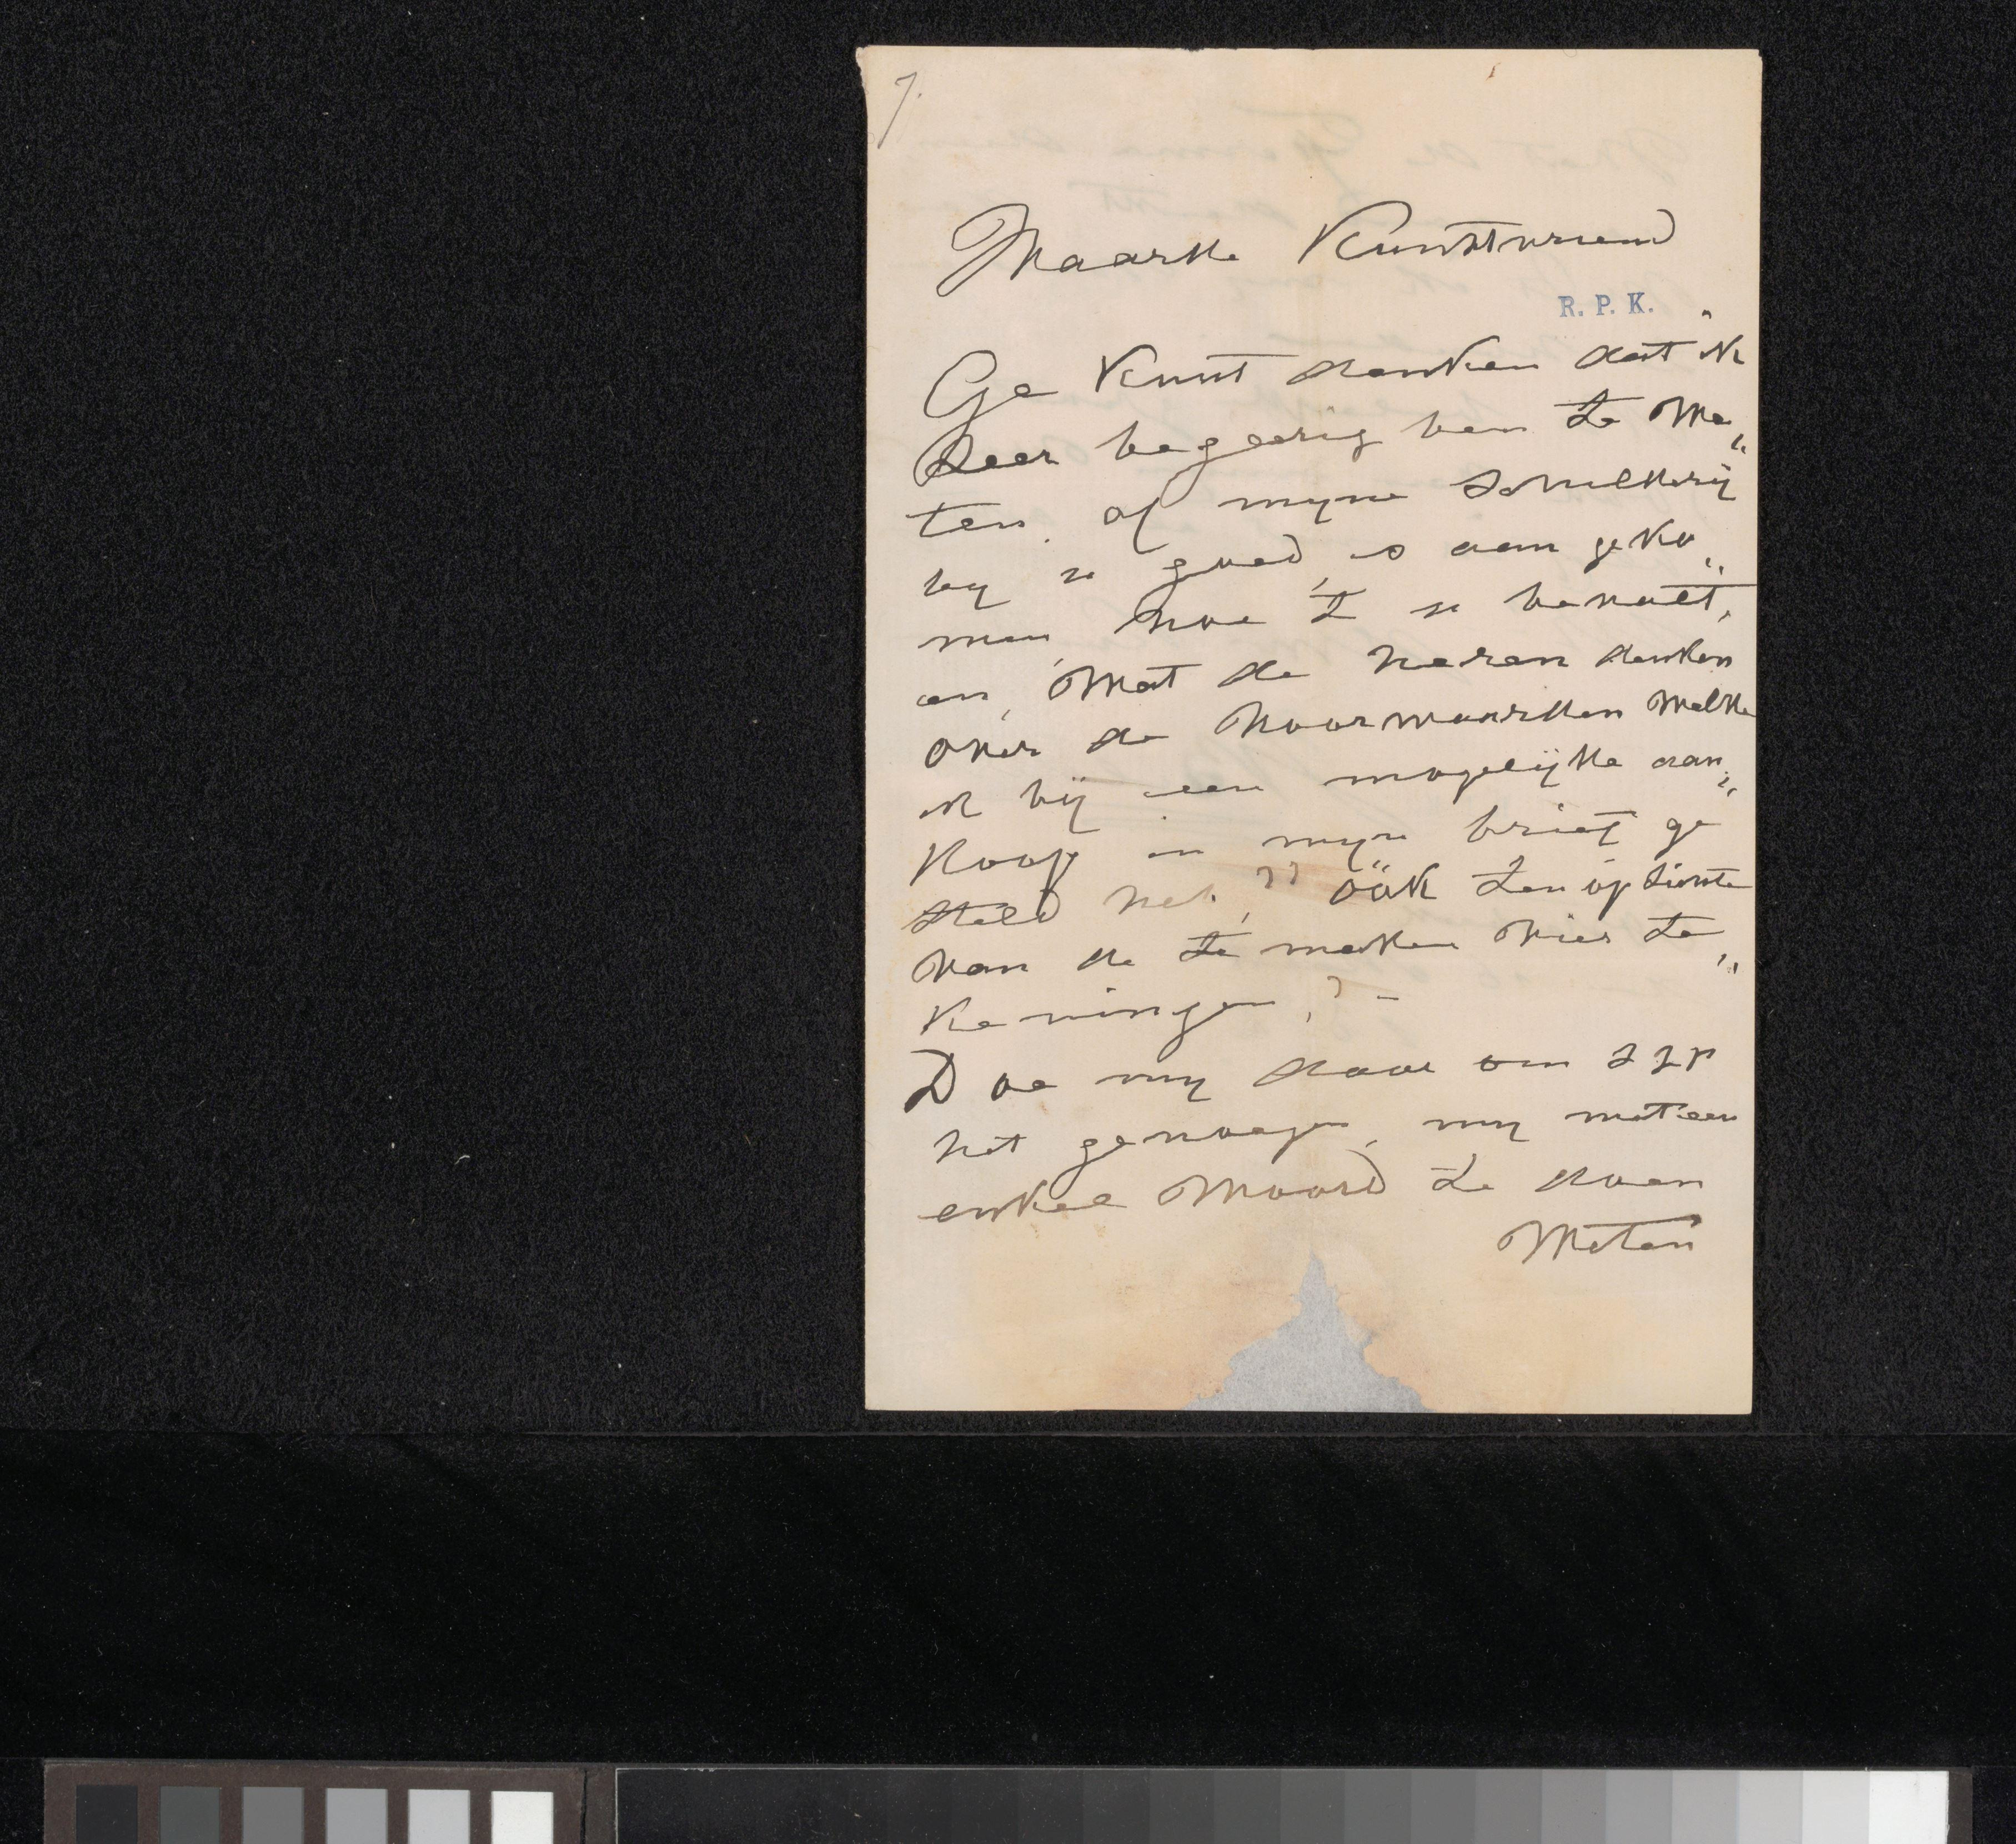 7.
Waarde Kunstvriend
R. P. K.
Ge kunt denken dat ik
zeer begeerig ben te we„
ten, of myne schilderij
by u goed is aangeko„
men, hoe 't u bevalt,
en, wat de heren denken
over de voorwaarden welke
ik bij een mogelijke aan„
koop in myn brief ge
steld heb, ?? öök ten opzichte
van de te maken vier te„
keningen, ? –
Doe my daar om
het genoegen, my met een
enkel woord te doen
weten